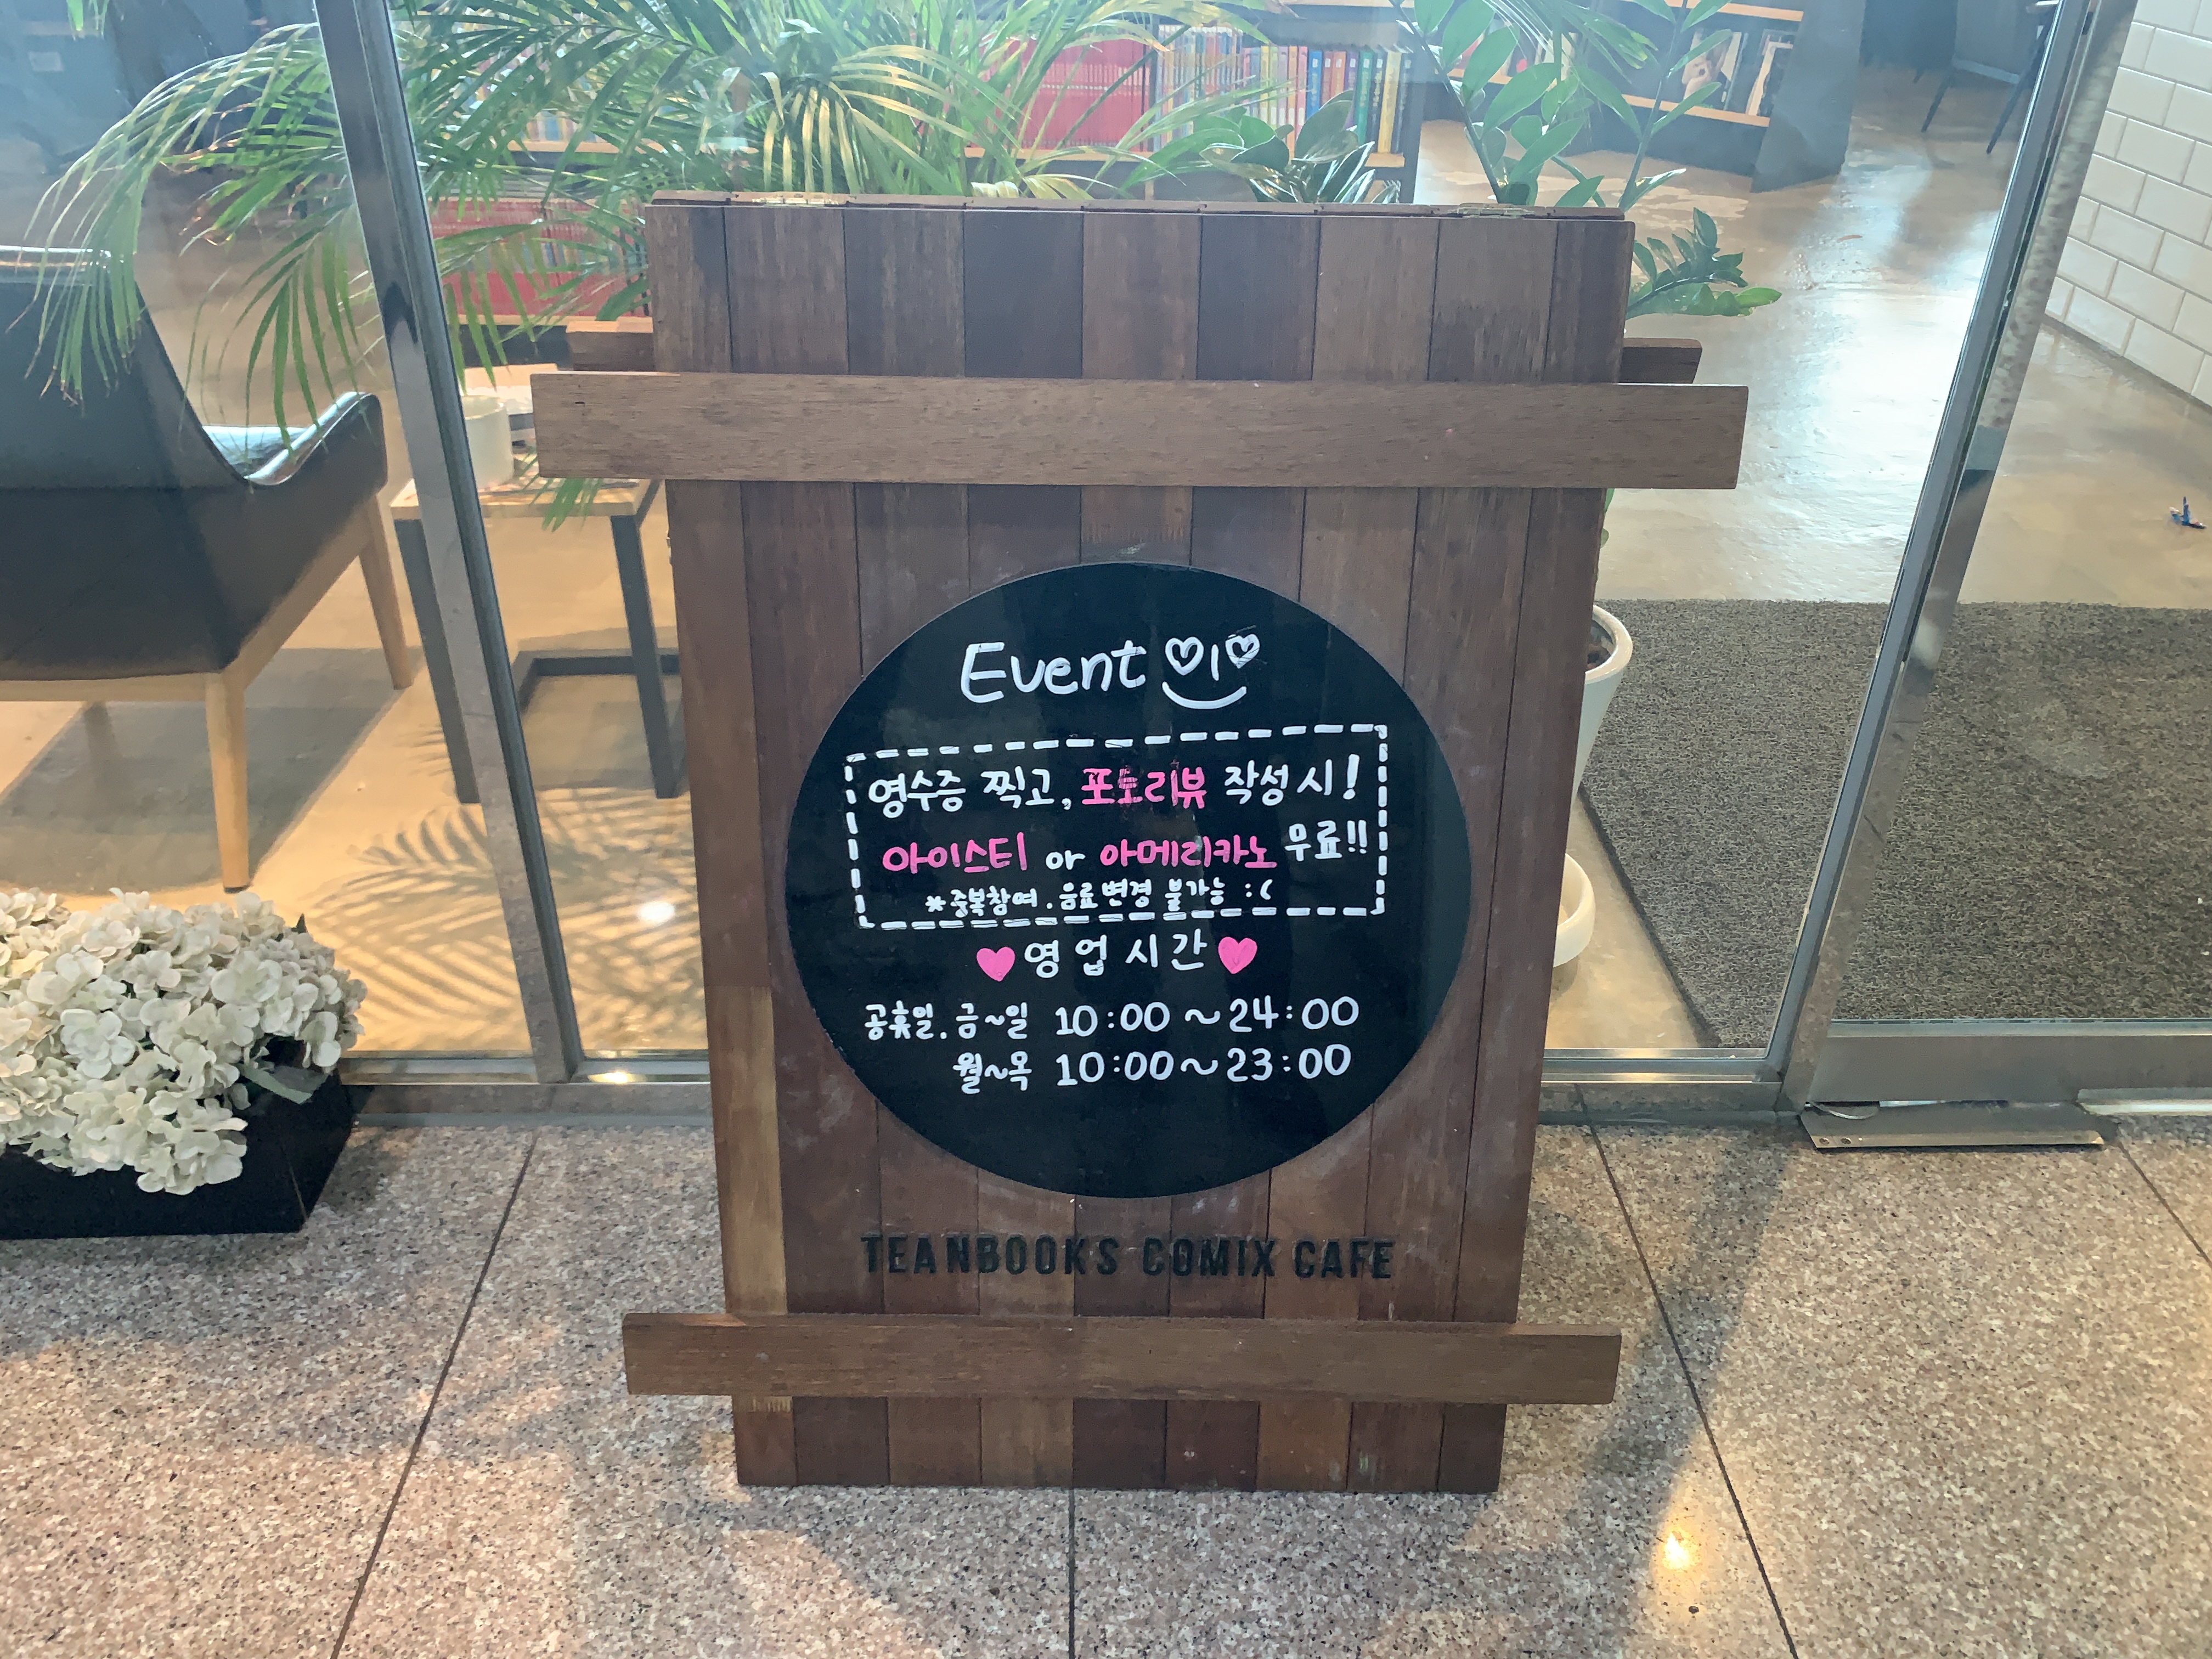 Event
영수증 찍고, 포토리뷰 작성 시!
아이스티 or 아메리카노 무료!!
*중복참여.음료변경 불가능 :(
♥영업시간♥
공휴일. 금~일 10:00~24:00
월~목 10:00~23:00
TEANBOOKS COMIX CAFE